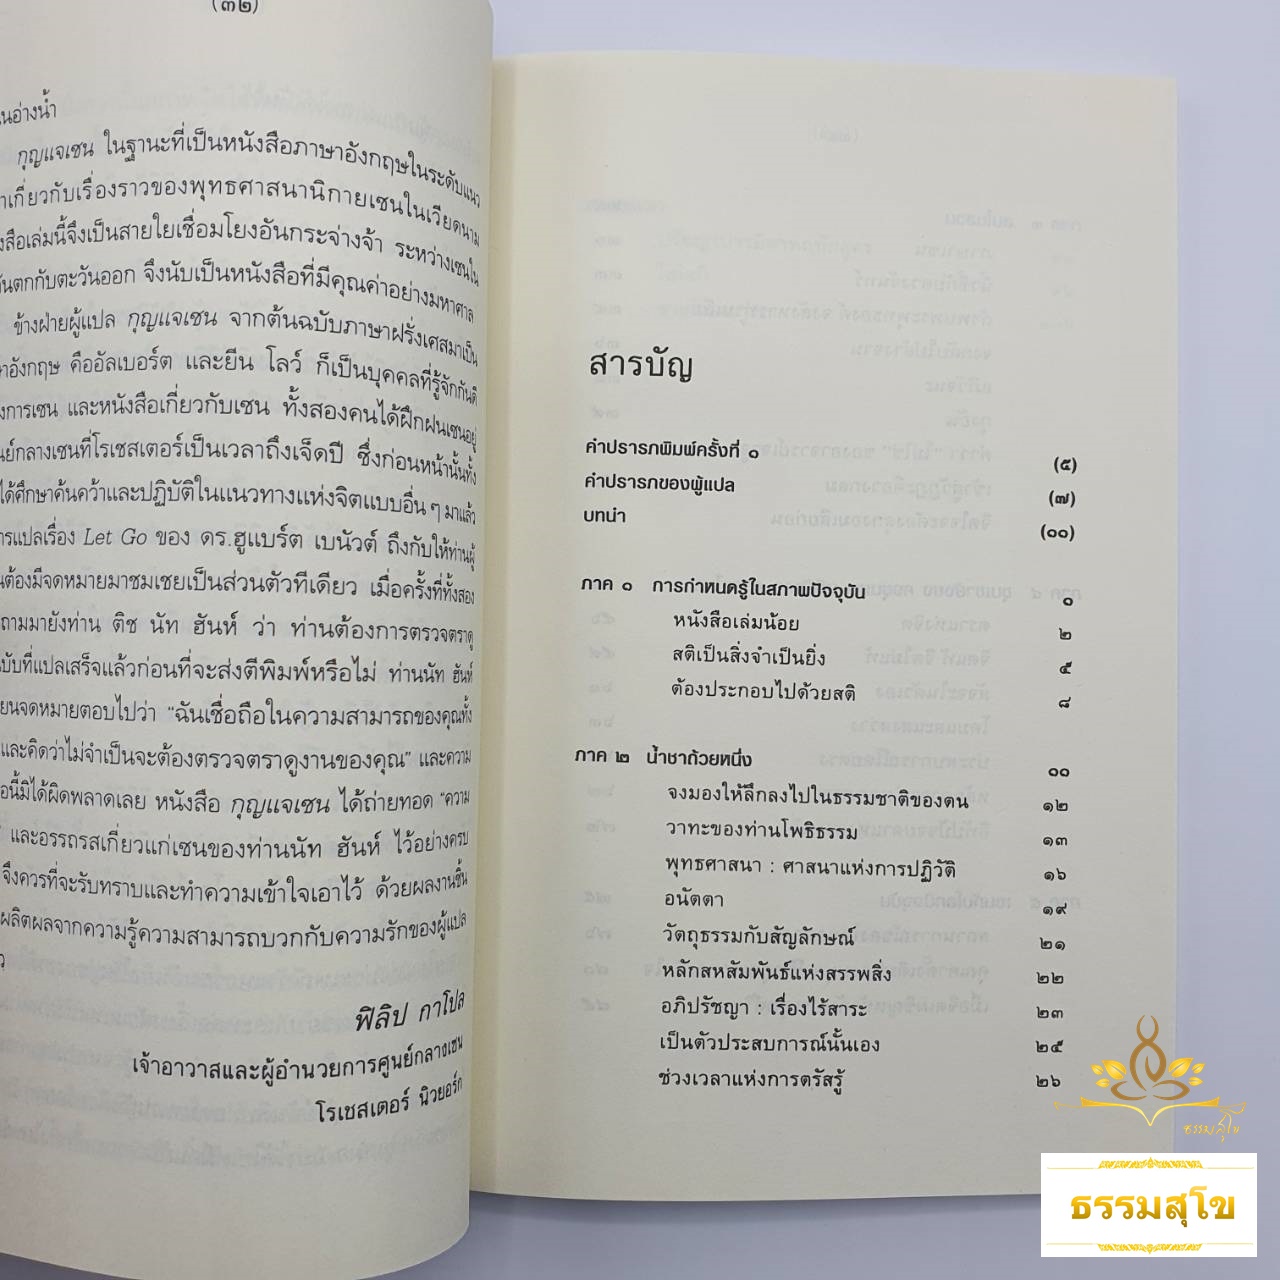 (๓๒)
กุญแจเซน ในฐานะที่เป็นหนังสือภาษาอังกฤษในระดับแนว
เกี่ยวกับเรื่องราวของพุทธศาสนานิกายเซนในเวียดนาม
สือเล่มนี้จึงเป็นสายใยเชื่อมโยงอันกระจ่างจ้า ระหว่างเซนใน
ตกกับตะวันออก จึงนับเป็นหนังสือที่มีคุณค่าอย่างมหาศาล
ข้างฝ่ายผู้แปล กุญแจเซน จากต้นฉบับภาษาฝรั่งเศสมาเป็น
อังกฤษ คืออัลเบอร์ต และยีน โลว์ ก็เป็นบุคคลที่รู้จักกันดี
การเซน และหนังสือเกี่ยวกับเซน ทั้งสองคนได้ฝึกฝนเซนอยู่
ย์กลางเซนที่โรเชสเตอร์เป็นเวลาถึงเจ็ดปี ซึ่งก่อนหน้านั้นทั้ง
ได้ศึกษาค้นคว้าและปฏิบัติในแนวทางแห่งจิตแบบอื่น ๆ มาแล้ว
การแปลเรื่อง Let Go ของ ดร.ฮูแบร์ต เบนัวต์ ถึงกับให้ท่านผู้
ต้องมีจดหมายมาชมเชยเป็นส่วนตัวทีเดียว เมื่อครั้งที่ทั้งสอง
ถามมายังท่าน ติช นัท ฮันห์ ว่า ท่านต้องการตรวจตราดู
บับที่แปลเสร็จแล้วก่อนที่จะส่งตีพิมพ์หรือไม่ ท่านนัท ฮันห์
ยนจดหมายตอบไปว่า “ฉันเชื่อถือในความสามารถของคุณทั้ง
และคิดว่าไม่จำเป็นจะต้องตรวจตราดูงานของคุณ” และความ
อนี้มิได้ผิดพลาดเลย หนังสือ กุญแจเซน ได้ถ่ายทอด “ความ
และอรรถรสเกี่ยวแก่เซนของท่านนัท ฮันห์ ไว้อย่างครบ
จึงควรที่จะรับทราบและทำความเข้าใจเอาไว้ ด้วยผลงานชิ้น
ผลิตผลจากความรู้ความสามารถบวกกับความรักของผู้แปล
ฟิลิป กาโปล
เจ้าอาวาสและผู้อำนวยการศูนย์กลางเซน
โรเชสเตอร์ นิวยอร์ก
สารบัญ
คำปรารภพิมพ์ครั้งที่ ๑ (๕)
คำปรารภของผู้แปล (๗)
บทนำ (๑๐)
ภาค ๑ การกำหนดรู้ในสภาพปัจจุบัน ๑
หนังสือเล่มน้อย ๒
สติเป็นสิ่งจำเป็นยิ่ง ๕
ต้องประกอบไปด้วยสติ ๘
ภาค ๒ น้ำชาถ้วยหนึ่ง ๑๑
จงมองให้ลึกลงไปในธรรมชาติของตน ๑๒
วาทะของท่านโพธิธรรม ๑๓
พุทธศาสนา : ศาสนาแห่งการปฏิวัติ ๑๖
อนัตตา ๑๙
วัตถุธรรมกับสัญลักษณ์ ๒๑
หลักสหสัมพันธ์แห่งสรรพสิ่ง ๒๒
อภิปรัชญา : เรื่องไร้สาระ ๒๓
เป็นตัวประสบการณ์นั้นเอง ๒๕
ช่วงเวลาแห่งการตรัสรู้ ๒๖
ธรรมสุโข
ธรรมสุโข